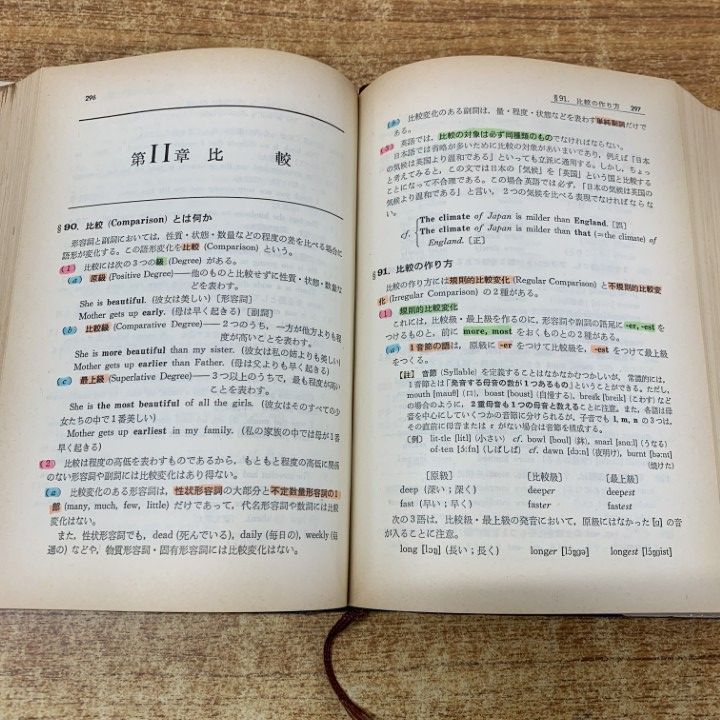 296
第11章 比 較
§90. 比較 (Comparison) とは何か
形容詞と副詞においては，性質・状態・数量などの程度の差を比べる場合に
語形が変化する。この語形変化を比較 (Comparison) という。
(1) 比較には次の3つの級 (Degree) がある。
(a) 原級 (Positive Degree)——他のものと比較せずに性質・状態・数量な
どを表わす。
She is beautiful. (彼女は美しい) [形容詞]
Mother gets up early. (母は早く起きる) [副詞]
(b) 比較級 (Comparative Degree)——2つのうち，一方が他方よりも程
度が高いことを表わす。
She is more beautiful than my sister. (彼女は私の姉よりも美しい)
Mother gets up earlier than Father. (母は父よりも早く起きる)
(c) 最上級 (Superlative Degree)——3つ以上のうちで，最も程度が高い
ことを表わす。
She is the most beautiful of all the girls. (彼女はそのすべての少
女たちの中で1番美しい)
Mother gets up earliest in my family. (私の家族の中では母が1番
早く起きる)
(2) 比較は程度の高低を表わすものであるから，もともと程度の高低に関係
のない形容詞や副詞には比較変化はあり得ない。
(a) 比較変化のある形容詞は，性状形容詞の大部分と不定数量形容詞の1
部 (many, much, few, little) だけであって，代名形容詞や数詞には比較
変化はない。
また，性状形容詞でも，dead (死んでいる), daily (毎日の), weekly (毎
週の) などや，物質形容詞・固有形容詞には比較変化はない。
§91. 比較の作り方 297
(b) 比較変化のある副詞は，量・程度・状態などを表わす単純副詞だけで
ある。
(3) 英語では，比較の対象は必ず同種類のものでなければならない。
日本語では省略が多いために比較の対象があいまいであり，例えば「日本
の気候は英国より温和である」といっても立派に通用する。しかし，ちょっ
と考えてみると，この文では日本の「気候」を「英国」という国と比較する
ことになって不合理である。この場合英語では必ず，「日本の気候は英国の
気候より温和である」と言い，2つの気候を比べる表現でなければならな
い。
cf. The climate of Japan is milder than England. [誤]
The climate of Japan is milder than that (=the climate) of
England. [正]
§91. 比較の作り方
比較の作り方には規則的比較変化 (Regular Comparison) と不規則的比較変
化 (Irregular Comparison) の2種がある。
(1) 規則的比較変化
これには，比較級・最上級を作るのに，形容詞や副詞の語尾に -er, -est を
つけるものと，前に more, most をおくものとの2種がある。
(a) 1音節の語は，原級に -er をつけて比較級を，-est をつけて最上級
をつくる。
【註】 音節 (Syllable) を定義することはなかなかむつかしいが，常識的には，
1音節とは「発音する母音の数が1つあるもの」ということができる。ただし，
mouth [mauθ] (口), boast [boust] (自慢する), break [breik] (こわす) など
の場合のように，2重母音も1つの母音と数えることに注意。また，各語は母
音を中心にしていくつかの音節に分けられるが，子音でも l, m, n の3つは，
その直前に母音または r がない場合は音節を構成する。
(例) lit-tle [lítl] (小さい) cf. bowl [boul] (鉢), snarl [snɑːl] (うなる)
of-ten [ɔ́ːfn] (しばしば) cf. dawn [dɔːn] (夜明け), burnt [bəːnt]
(焼けた)
[原級] [比較級] [最上級]
deep (深い；深く) deeper deepest
fast (早い；早く) faster fastest
次の3語は，比較級・最上級の発音において，原級にはなかった [g] の音
が入ることに注意。
long [lɔŋ] (長い；長く) longer [lɔ́ŋgə] longest [lɔ́ŋgist]